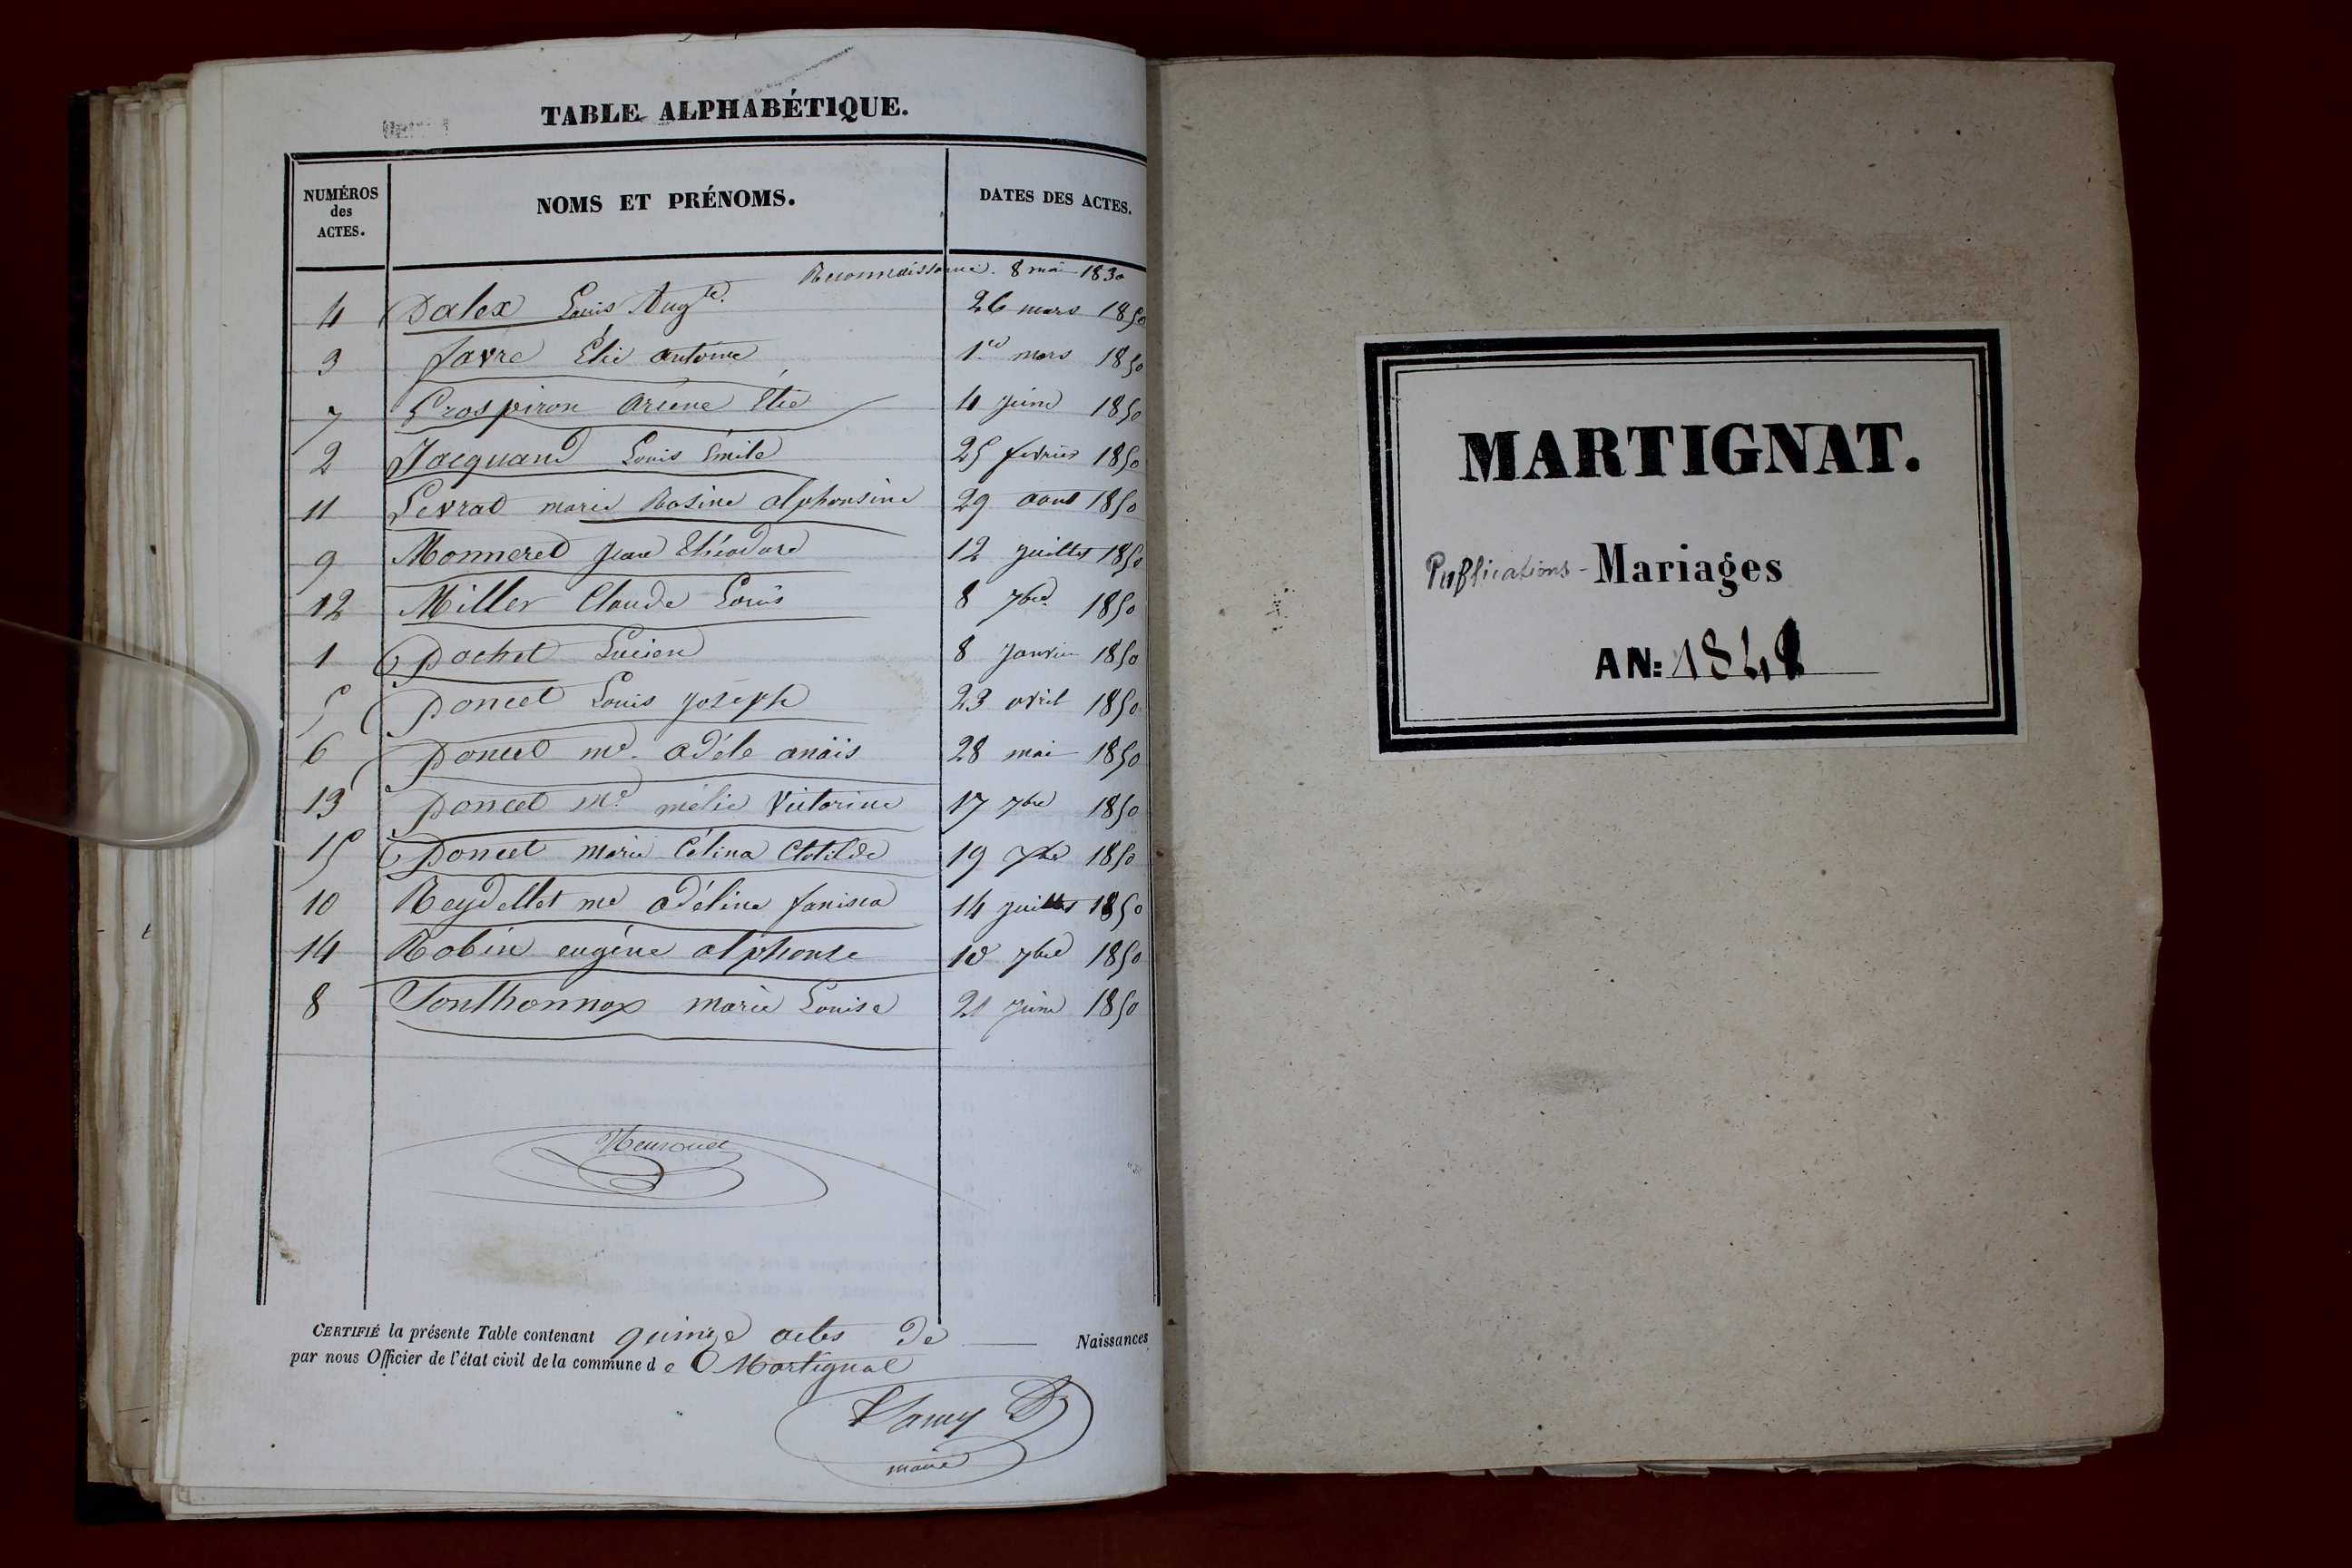 TABLE ALPHABÉTIQUE.
NUMÉROS
des
ACTES.
NOMS ET PRÉNOMS.
DATES DES ACTES.
Reconnaissance. 8 mai 1830
4 Dalex Louis Augte. 26 mars 1850
3 favre Élie antoine 1er mars 1850
7 Grospiron Arsène Élie 4 juin 1850
2 Jacquand Louis Émile 25 fevrier 1850
11 Levrat marie Rosine alphonsine 29 aout 1850
9 Monneret Jean théodore 12 juillet 1850
12 Miller Claude Louis 8 7bre 1850
1 Pochet Lucien 8 Janvier 1850
5 Poncet Louis joseph 23 avril 1850
6 Poncet me. adèle anäis 28 mai 1850
13 Poncet me mélie Victorine 17 7bre 1850
15 Poncet marie Célina Clotilde 19 7bre 1850
10 Reydellet me adéline fanisca 14 juillet 1850
14 Robin eugène alphonse 18 7bre 1850
8 Tonthonnax marie Louise 21 juin 1850
CERTIFIÉ la présente Table contenant quinze actes de Naissances
par nous Officier de l'état civil de la commune de Martignat
maire
MARTIGNAT.
Publications - Mariages
AN: 184